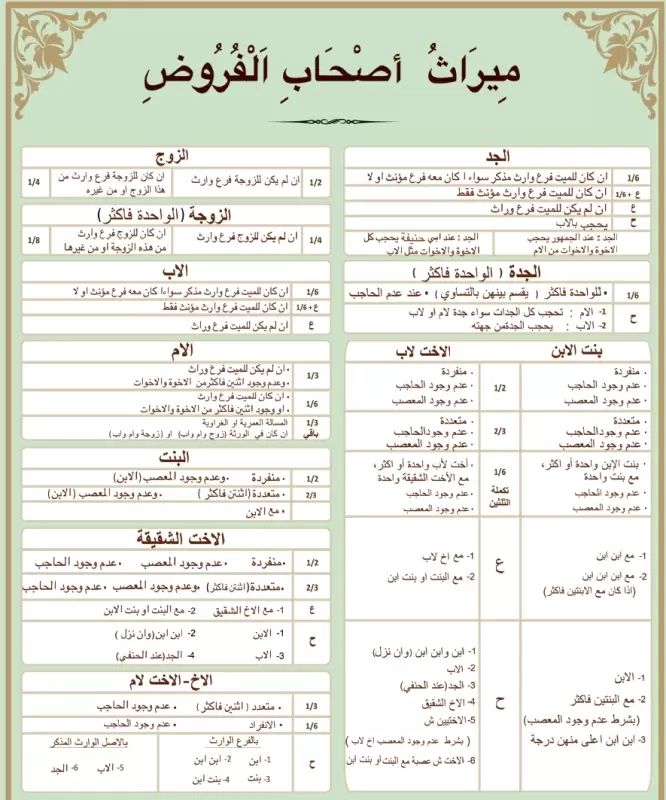 مِيرَاثُ أصْحَابِ اَلْفُرُوضِ
الجد
1/6 ان كان للميت فرع وارث مذكر سواء ا كان معه فرع مؤنث او لا
ع +1/6 ان كان للميت فرع وارث مؤنث فقط
ع ان لم يكن للميت فرع وراث
ح يحجب بالاب
الجد : عند الجمهور يحجب
الاخوة والاخوات من الام
الجد : عند ابي حنيفة يحجب كل
الاخوة والاخوات مثل الاب
الجدة ( الواحدة فاكثر )
1/6 • للواحدة فاكثر ( يقسم بينهن بالتساوي ) • عند عدم الحاجب
ح 1- الام : تحجب كل الجدات سواء جدة لام او لاب
2- الاب : يحجب الجدةمن جهته
بنت الابن
الاخت لاب
• منفردة
• عدم وجود الحاجب
• عدم وجود المعصب
1/2
• منفردة
• عدم وجود الحاجب
• عدم وجود المعصب
• متعددة
• عدم وجودالحاجب
• عدم وجود المعصب
2/3
• متعددة
• عدم وجودالحاجب
• عدم وجود المعصب
• بنت الإبن واحدة أو اكثر،
مع بنت واحدة
• عدم وجود الحاجب
• عدم وجود المعصب
1/6
تكملة
الثلثين
• أخت لأب واحدة أو اكثر،
مع الأخت الشقيقة واحدة
• عدم وجود الحاجب
• عدم وجود المعصب
1- مع ابن ابن
2- مع ابن ابن ابن
(اذا كان مع الابنتين فاكثر)
ع
1- مع اخ لاب
2- مع البنت او بنت ابن
1- الابن
2- مع البنتين فاكثر
(بشرط عدم وجود المعصب)
3- ابن ابن اعلى منهن درجة
ح
1- ابن وابن ابن (وان نزل)
2- الاب
3- الجد(عند الحنفي)
4- الاخ الشقيق
5- الاختيين ش
( بشرط عدم وجود المعصب اخ لاب )
6- الاخت ش عصبة مع البنت او بنت ابن
الزوج
1/2 ان لم يكن للزوجة فرع وارث
1/4 ان كان للزوجة فرع وارث من
هذا الزوج او من غيره
الزوجة (الواحدة فاكثر)
1/4 ان لم يكن للزوج فرع وارث
1/8 ان كان للزوج فرع وارث
من هذه الزوجة او من غيرها
الاب
1/6 ان كان للميت فرع وارث مذكر سواءا كان معه فرع مؤنث او لا
ع+1/6 ان كان للميت فرع وارث مؤنث فقط
ع ان لم يكن للميت فرع وراث
الام
1/3 • ان لم يكن للميت فرع وراث
• وعدم وجود اثنين فاكثرمن الاخوة والاخوات
1/6 • ان كان للميت فرع وارث
• او وجود اثنين فاكثر من الاخوة والاخوات
1/3
باقي
المسالة العمرية او الغراوية
ان كان في الورثة (زوج وام واب) او (زوجة وام واب)
البنت
1/2 • منفردة • وعدم وجود المعصب(الابن)
2/3 • متعددة (اثنتن فاكثر ) • وعدم وجود المعصب (الابن)
• مع الابن
الاخت الشقيقة
1/2 •منفردة • عدم وجود المعصب • عدم وجود الحاجب
2/3 •متعددة(اثنتن فاكثر) •وعدم وجود المعصب • عدم وجود الحاجب
ع 1- مع الاخ الشقيق 2- مع البنت او بنت الابن
ح 1- الابن 2- ابن ابن(وان نزل )
3- الاب 4- الجد(عند الحنفي)
الاخ-الاخت لام
1/3 • متعدد ( اثنين فاكثر ) • عدم وجود الحاجب
1/6 • الانفراد • عدم وجود الحاجب
ح
بالفرع الوارث
1- ابن 2- ابن ابن
3- بنت 4- بنت ابن
بالاصل الوارث المذكر
5- الاب 6- الجد